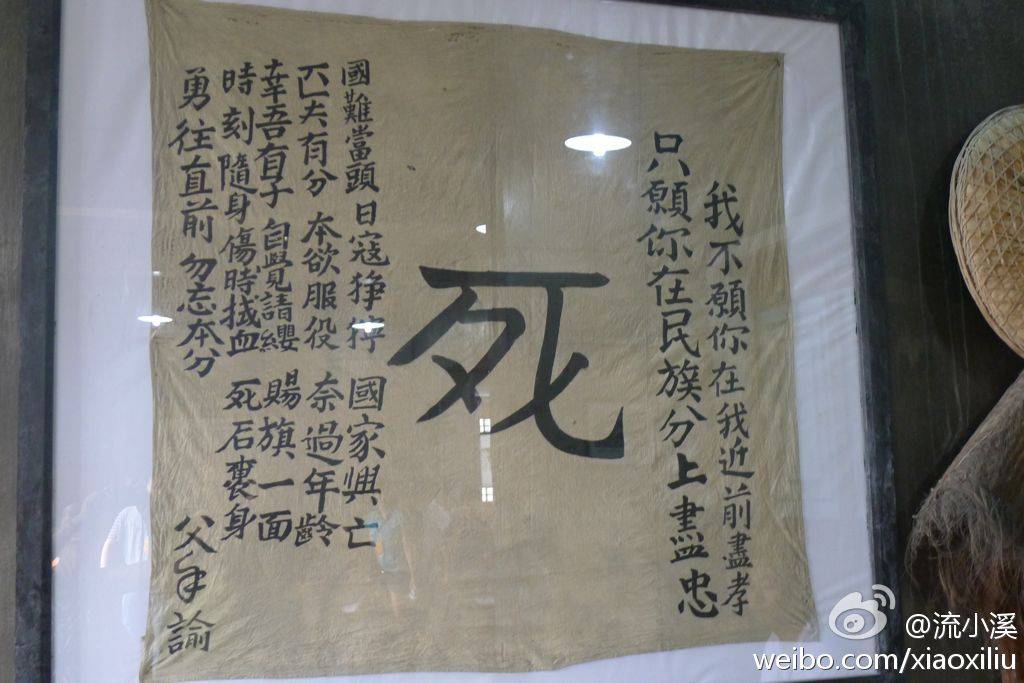 我不願你在我近前盡孝
只願你在民族分上盡忠
死
國難當頭 日寇猙獰 國家興亡
匹夫有分 本欲服役 奈過年齡
幸吾有子 自覺請纓 賜旗一面
時刻隨身 傷時拭血 死石裹身
勇往直前 勿忘本分
父手諭
@流小溪
weibo.com/xiaoxiliu